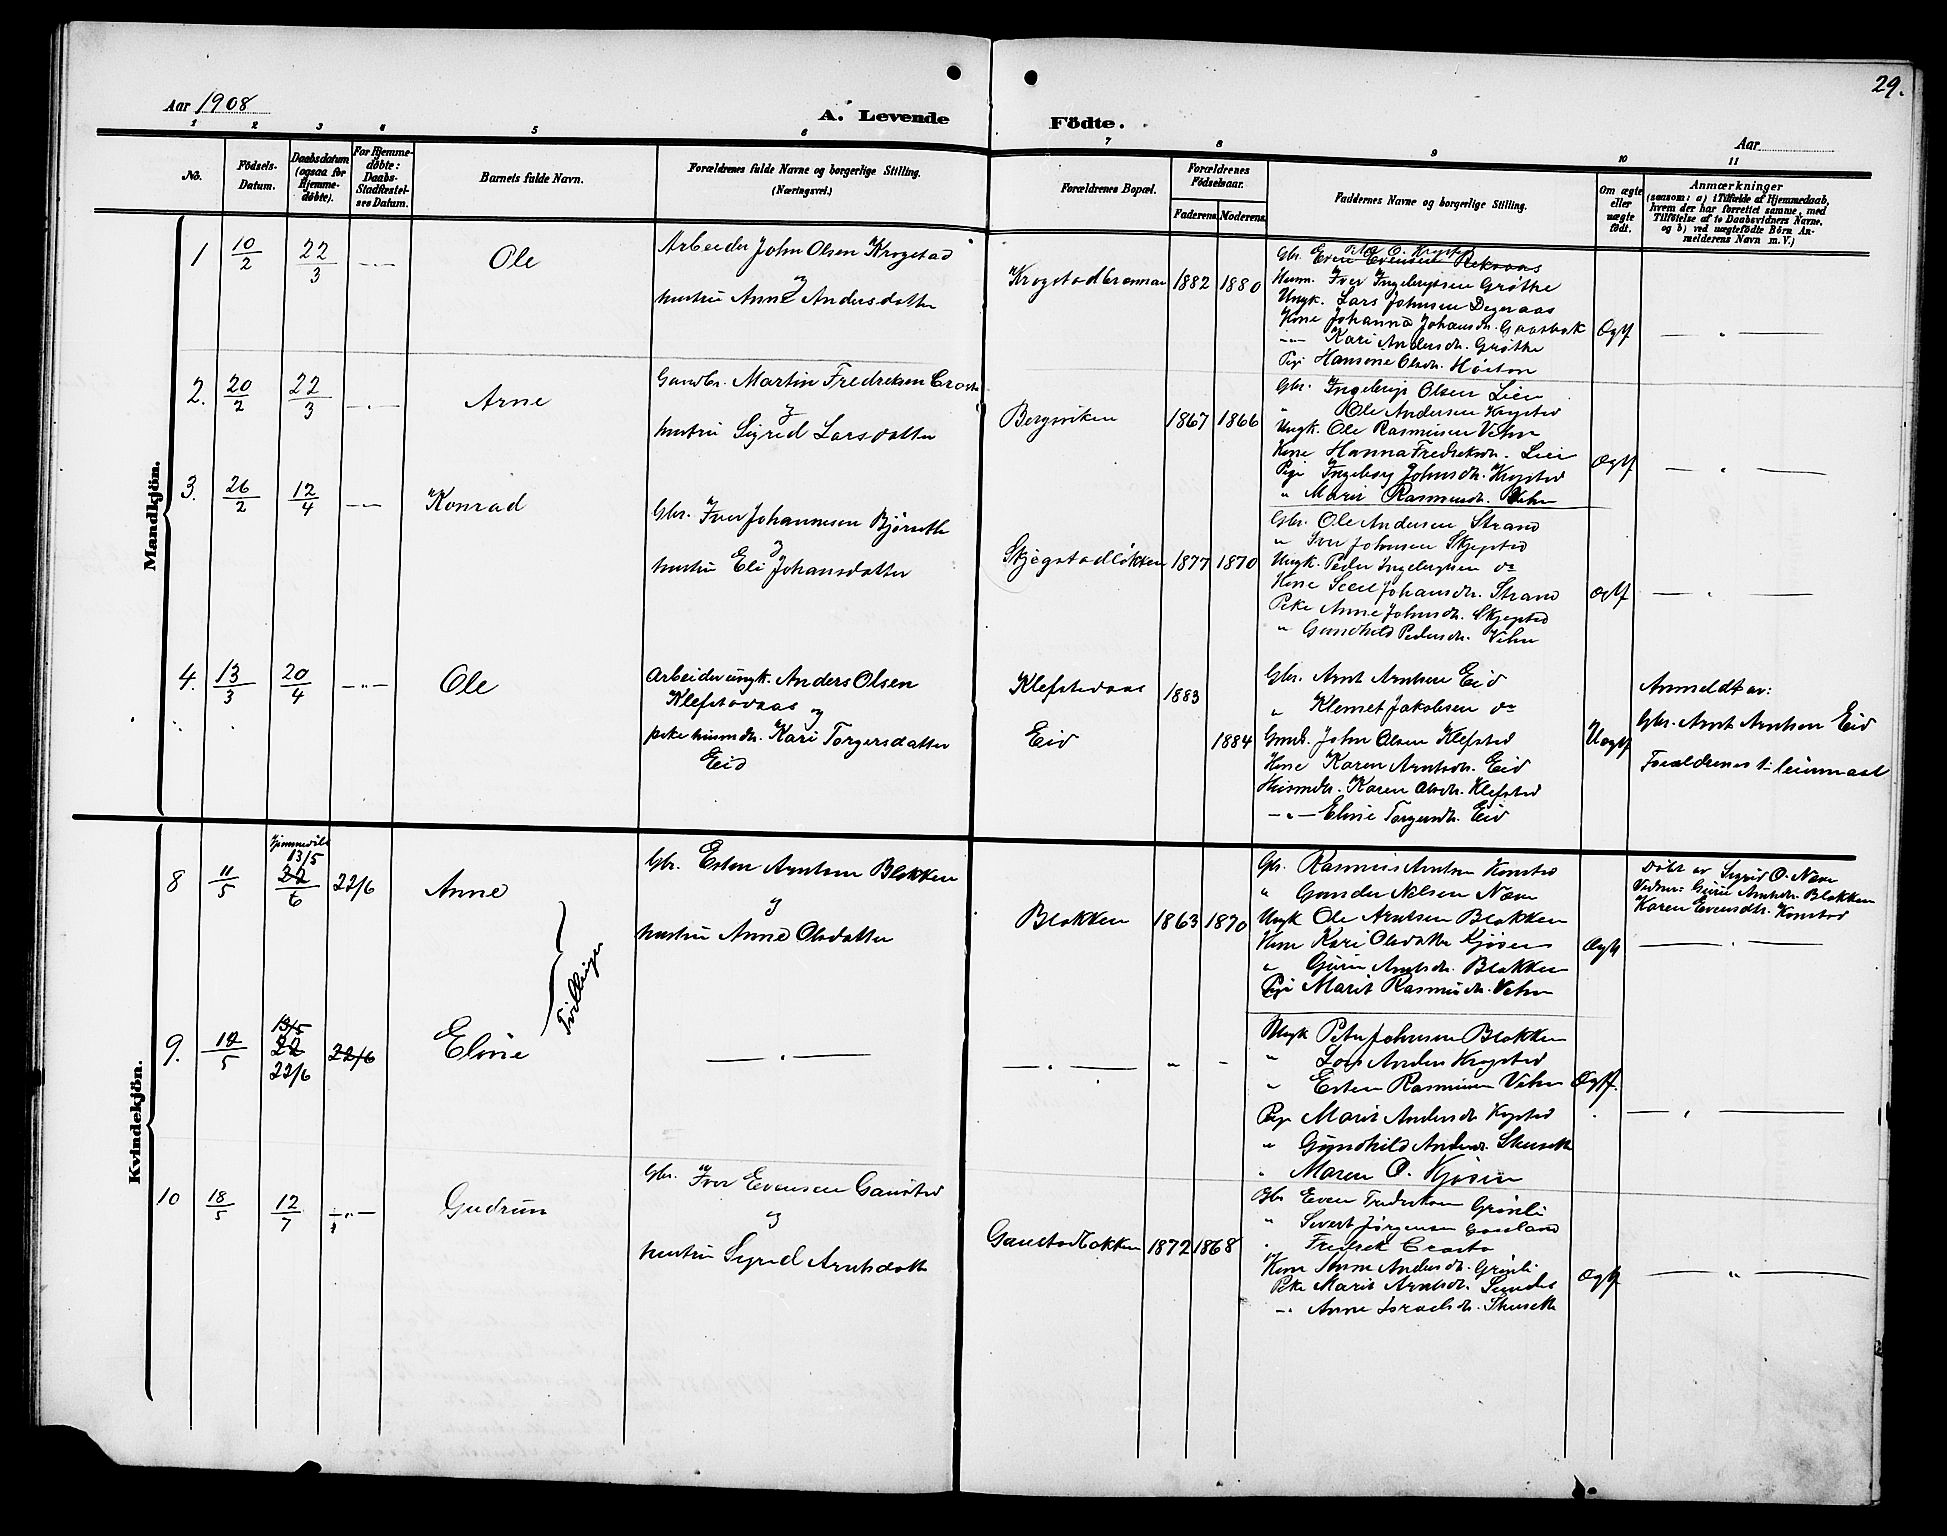 29.
Aar 1908
A. Levende Födte.
Aar
1 2 3 4 5 6 7 8 9 10 11
No.
Födsels-Datum.
Daabsdatum (ogsaa for Hjemme-döbte).
For Hjemme-döbte: Daabs-Stadfæstel-ses Datum.
Barnets fulde Navn.
Forældrenes fulde Navne og borgerlige Stilling. (Næringsvei.)
Forældrenes Bopæl.
Forældrenes Födselsaar.
Faderens. Moderens.
Faddernes Navne og borgerlige Stilling.
Om ægte eller uægte födt.
Anmærkninger
(saasom: a) i Tilfælde af Hjemmedaab,
hvem der har forrettet samme, med
Tilföielse af to Daabsvidners Navne.
og b) ved uægtefödte Börn An-
melderens Navn m. V.)
Mandkjön.
1 10/2 22/3 — " — Ole
Arbeider John Olsen Krogstad
og
hustru Anne Andersdatter
1882 1880
Gbr. Even Evensen
Husm. Iver Ingebrigtsen Grøtte
Ungk. Lars Johnsen Degnaas
Kone Johanna Johansdr.
— " — Kari Andersdr. Grøtte
Pige Hansine Olsdr. Høiton
Ægtf — " —
2. 20/2 22/3 — " — Arne
Gaardbr. Martin Fredriksen
og
hustru Sigrid Larsdatter
Bergsviken 1867 1866
Gbr. Ingebrigt Olsen Lien
" Ole Andersen Krogstad
Ungk. Ole Rasmussen
Kone Hanna Fredriksdr. Lien
Pige Ingeborg Johnsdr. Krogstad
" Marit Rasmusdr.
Ægtf — " —
3. 26/2 12/4 — " — Konrad
Gbr. Iver Johannesen Bjørseth
og
hustru Eli Johansdatter
Skjøgstadløkken 1877 1870
Gbr. Ole Andersen Strand
" Iver Johnsen
Ungk. Peder Ingebrigtsen do
Kone Johansdr. Strand
Pike Anne Johnsdr.
" Gunhild Pedersdr.
Ægtf — " —
4. 13/3 20/4 — " — Ole
Arbeider ungk. Anders Olsen
Klefstadaas og
pike husmdr. Kari Torgersdatter
Eid
Klefstadaas 1883
Eid 1884
Gbr. Arnt Arntsen Eid
" Klemet Jakobsen do
John Olsen Klefstad
Kone Karen Arntsdr. Eid
Husmdr. Karen Olsdr. Klefstad
— " — Eline Torgersdr. Eid
Uægtf
Anmeldt av:
Gbr. Arnt Arntsen Eid
Forældrenes 1ste leiermaal
Kvindekjön.
8 11/5 Hjemmedøbt 13/5 22/6 22/6 Anne
Gbr. Esten Arntsen Blokken
og
hustru Anne Olsdatter
Blokken 1863 1870
Gbr. Rasmus Arntsen Konstad
" Gunder Nilsen Næve
Ungk Ole Arntsen Blokken
Kone Kari Olsdatter Kjøsen
" Guru Arntsdr. Blokken
Pige Marit Rasmusdr.
Ægtf
Døbt av Sigrid O. Næve
Vidner: Guru Arntsdr. Blokken
Karen Evensdtr. Konstad
— " —
Tvillinger
9. 12/5 13/5 22 22/6 22/6 Eline
— " — — " — " -
Ungk Peter Johnsen Blokken
" Lars Anders Krogstad
" Esten Rasmussen
Pige Marit Andersdr. Krogstad
" Gunhild Andersdr. Skuseth
" Maren O. Kjøsen
Ægtf. — " —
10 18/5 12/7 — " — Gudrun
Gbr. Iver Evensen Ganstad
og
hustru Sigrid Arntsdatter
Ganstadløkken 1872 1868
Gbr Even Fredriksen Grønli
" Sivert Jørgensen
" Fredrik
Kone Anne Andersdr. Grønli
Pike Marit Arntsdr.
— " Anne Israelsdr. Skuseth
Ægtf — " —